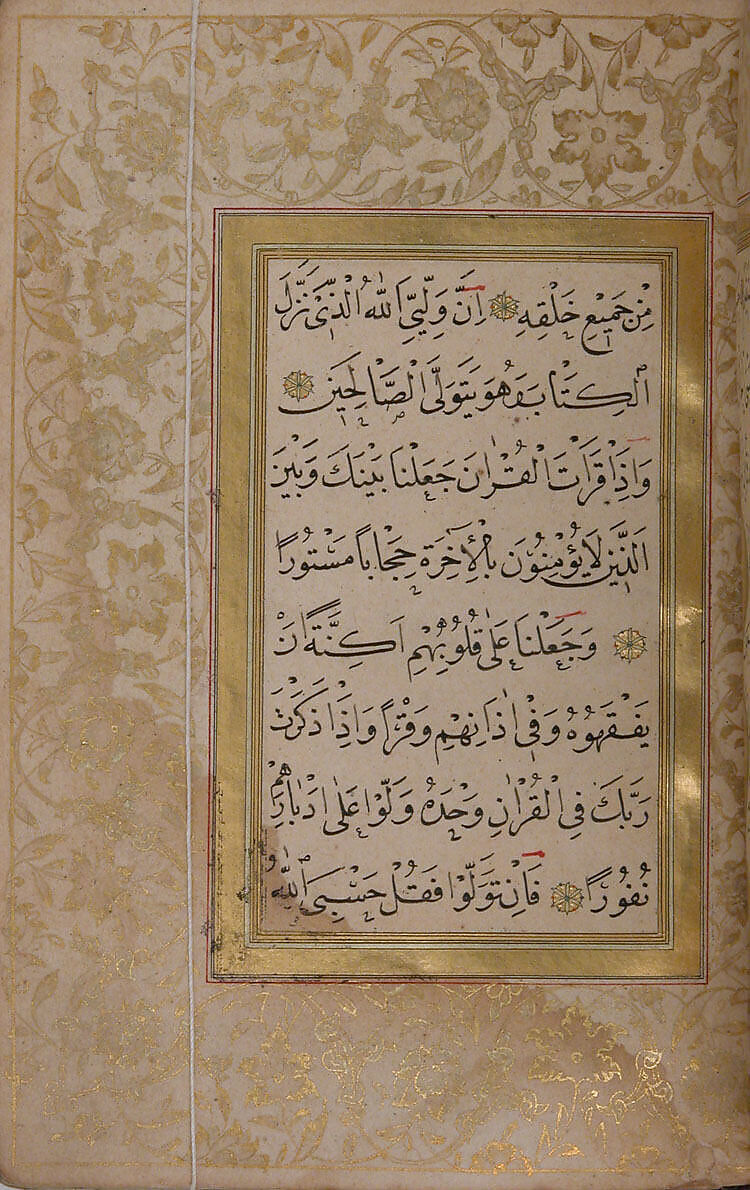 مِنْ جَمِيعِ خَلْقِهِ اِنَّ وَلِيِّيَ اللّٰهُ الَّذِي نَزَّلَ
الْكِتَابَ وَهُوَ يَتَوَلَّى الصَّالِحِينَ
وَاِذَا قَرَاْتَ الْقُرْاٰنَ جَعَلْنَا بَيْنَكَ وَبَيْنَ
الَّذِينَ لَا يُؤْمِنُونَ بِالْاٰخِرَةِ حِجَابًا مَسْتُورًا
وَجَعَلْنَا عَلٰى قُلُوبِهِمْ اَكِنَّةً اَنْ
يَفْقَهُوهُ وَفِي اٰذَانِهِمْ وَقْرًا وَاِذَا ذَكَرْتَ
رَبَّكَ فِي الْقُرْاٰنِ وَحْدَهُ وَلَّوْا عَلٰى اَدْبَارِهِمْ
نُفُورًا فَاِنْ تَوَلَّوْا فَقُلْ حَسْبِيَ اللّٰهُ